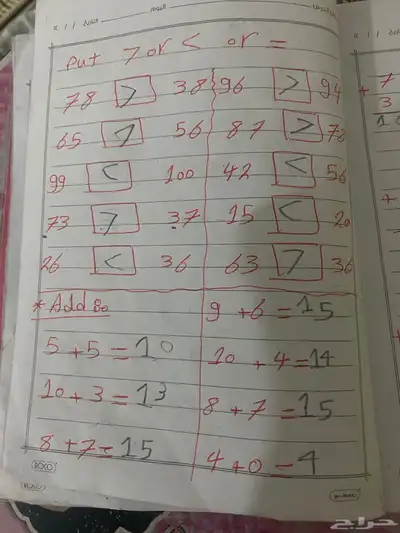 put > or < or =
78 > 38 96 > 94
65 > 56 87 > 72
99 < 100 42 < 56
73 > 37 15 < 20
26 < 36 63 > 36
* Add 80 9 + 6 = 15
5 + 5 = 10 10 + 4 = 14
10 + 3 = 13 8 + 7 = 15
8 + 7 = 15 4 + 0 = 4
حراج